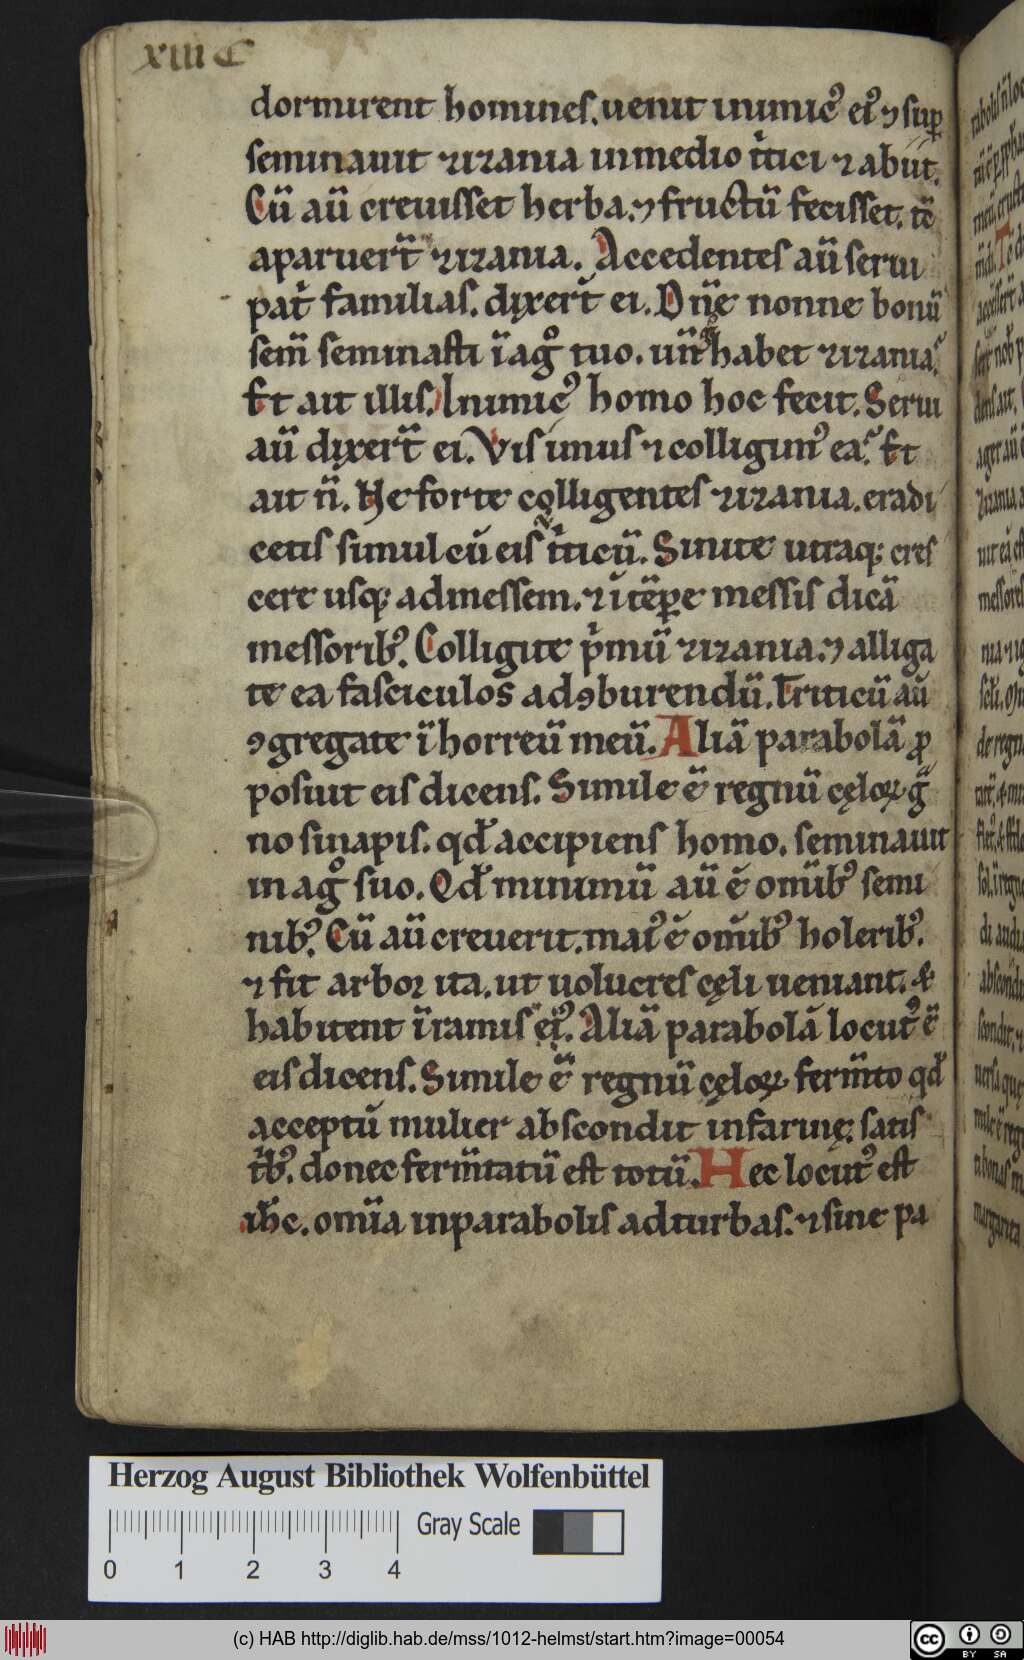 xiii C
dormirent homines. uenit inimicꝰ eiꝰ ⁊ suꝑ
seminauit zizania in medio tⁱtici ⁊ abiit.
Cū aū creuisset herba. ⁊ fructū fecisset. tc̄
aparuert̄ zizania. Accedentes aū serui
pat̄ familias. dixert̄ ei. Dn̄e nonne bonū
sem̄ seminasti ī agͦ tuo. un̄ habet zizania?
Et ait illis. Inimicꝰ homo hoc fecit. Serui
aū dixert̄ ei. Vis imus ⁊ colligimꝰ ea? Et
ait n̄. Ne forte colligentes zizania. eradi
cetis simul cū eis tⁱticū. Sinite utraqꝫ cres
cere usqꝫ ad messem. ⁊ ī tēꝑe messis dicā
messoribꝰ. Colligite pⁱmū zizania. ⁊ alliga
te ea fasciculos ad ꝯburendū. Triticū aū
ꝯgregate ī horreū meū. Aliā parabolā ꝓ
posuit eis dicens. Simile ē regnū cęloꝝ gᵃ
no sinapis. qd̄ accipiens homo. seminauit
in agͦ suo. Qd̄ minimū aū ē om̄ibꝰ semi
nibꝰ. Cū aū creuerit. maiꝰ ē om̄ibꝰ holeribꝰ.
⁊ fit arbor ita. ut uolucres cęli ueniant. &
habitent ī ramis eiꝰ. Aliā parabolā locutꝰ ē
eis dicens. Simile ē regnū cęloꝝ ferm̄to qd̄
acceptū mulier abscondit in farinę satis
tⁱbꝰ. donec ferm̄tatū est totū. Hec locutꝰ est
ih̄c. om̄ia in parabolis ad turbas. ⁊ sine pa
Herzog August Bibliothek Wolfenbüttel
Gray Scale
0 1 2 3 4
(c) HAB http://diglib.hab.de/mss/1012-helmst/start.htm?image=00054
cc BY SA